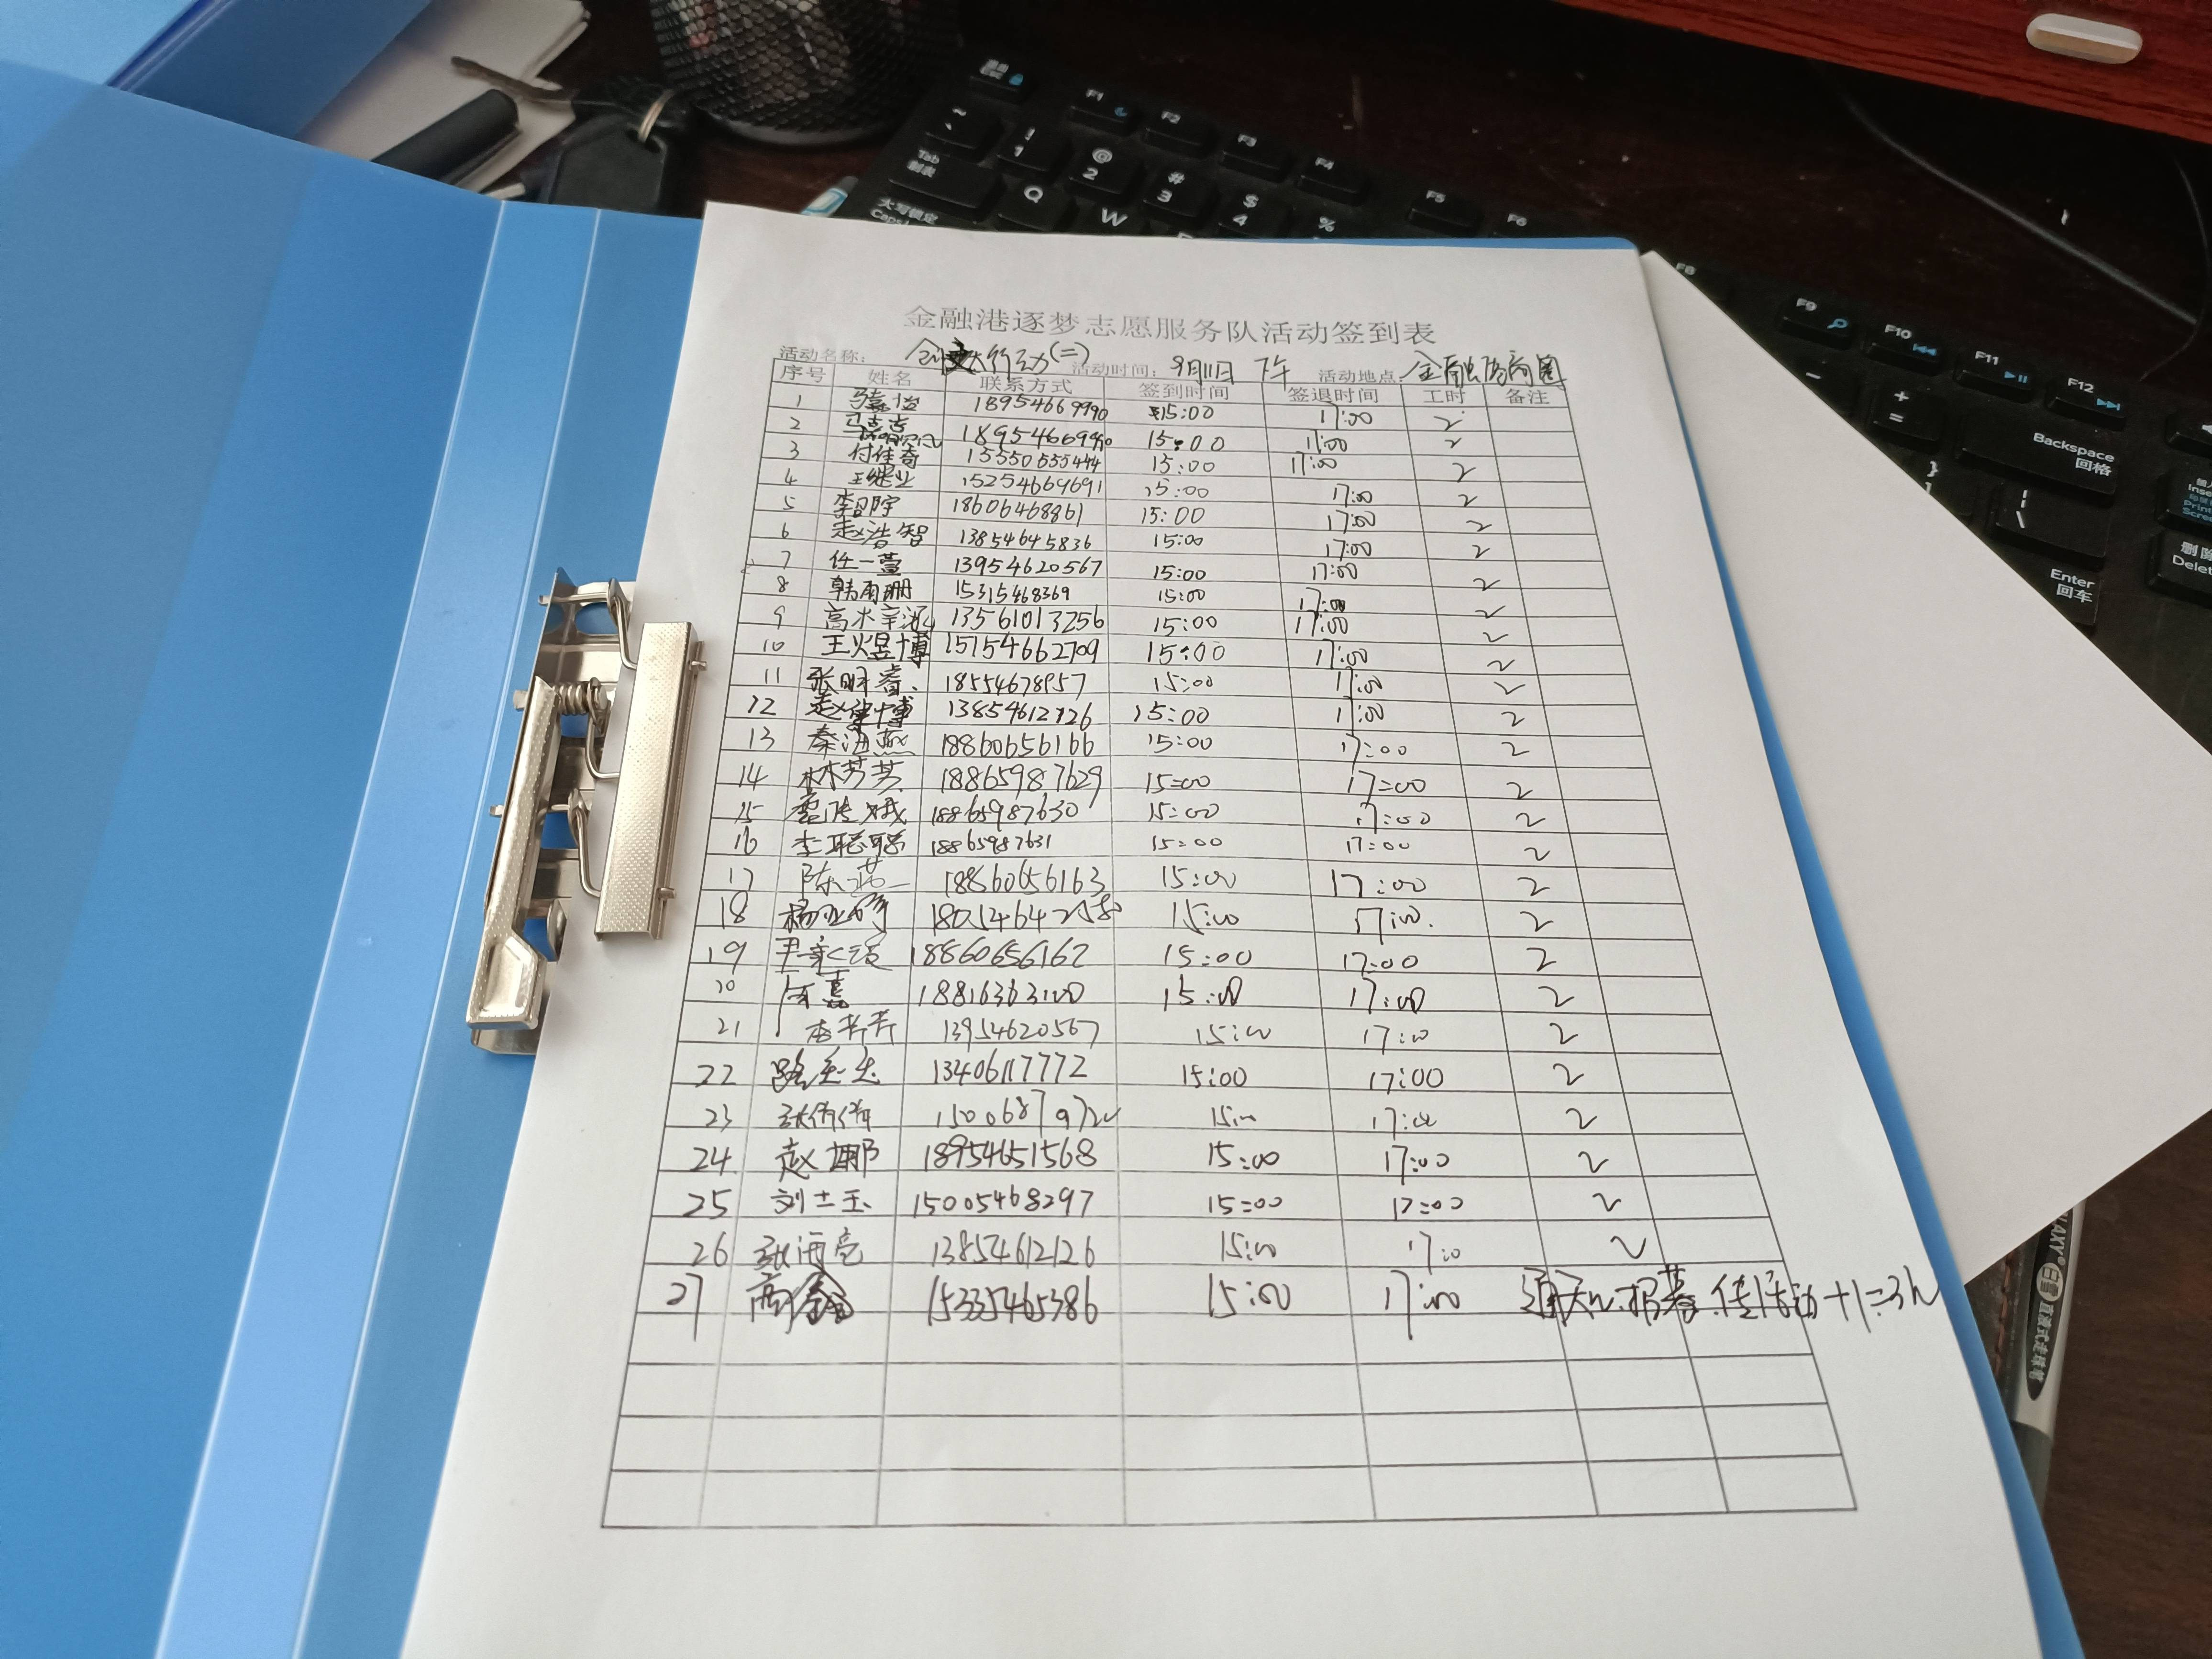 金融港逐梦志愿服务队活动签到表
活动名称: 创文大行动(二) 活动时间: 9月11日 下午 活动地点: 金融港商圈
序号 姓名 联系方式 签到时间 签退时间 工时 备注
1 18954669990 15:00 17:00 2
2 18954669990 15:00 17:00 2
3 付佳奇 15550555444 15:00 17:00 2
4 王继业 15254669691 15:00 17:00 2
5 18606468861 15:00 17:00 2
6 赵浩智 13854645836 15:00 17:00 2
7 任一萱 13954620567 15:00 17:00 2
8 韩雨珊 15315468369 15:00 17:00 2
9 13561013256 15:00 17:00 2
10 王煜博 15154662709 15:00 17:00 2
11 张明睿 15:00 17:00 2
12 15:00 17:00 2
13 秦海燕 18860656166 15:00 17:00 2
14 林芳芳 18865987629 15:00 17:00 2
15 18865987630 15:00 17:00 2
16 李聪聪 18865987631 15:00 17:00 2
17 18860656163 15:00 17:00 2
18 15:00 17:00 2
19 18860656162 15:00 17:00 2
20 18816363100 15:00 17:00 2
21 13954620567 15:00 17:00 2
22 13406117772 15:00 17:00 2
23 张倩倩 15:00 17:00 2
24 赵娜 18954651568 15:00 17:00 2
25 刘士玉 15005468297 15:00 17:00 2
26 张海亮 13854612126 15:00 17:00 2
27 高鑫 15335465386 15:00 17:00 招募 活动+1=3h
~
Tab
制表
大写锁定
!
1
@
2
#
3
$
4
%
Q
W
F1
F2
F3
F4
F5
F6
F8
F9
F10
F11
F12
+
=
Backspace
回格
Enter
回车
删除
直液式走珠笔